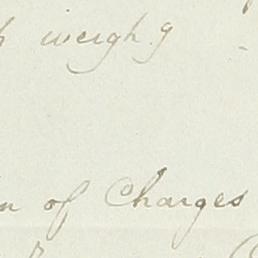 weigh.g
of Charges